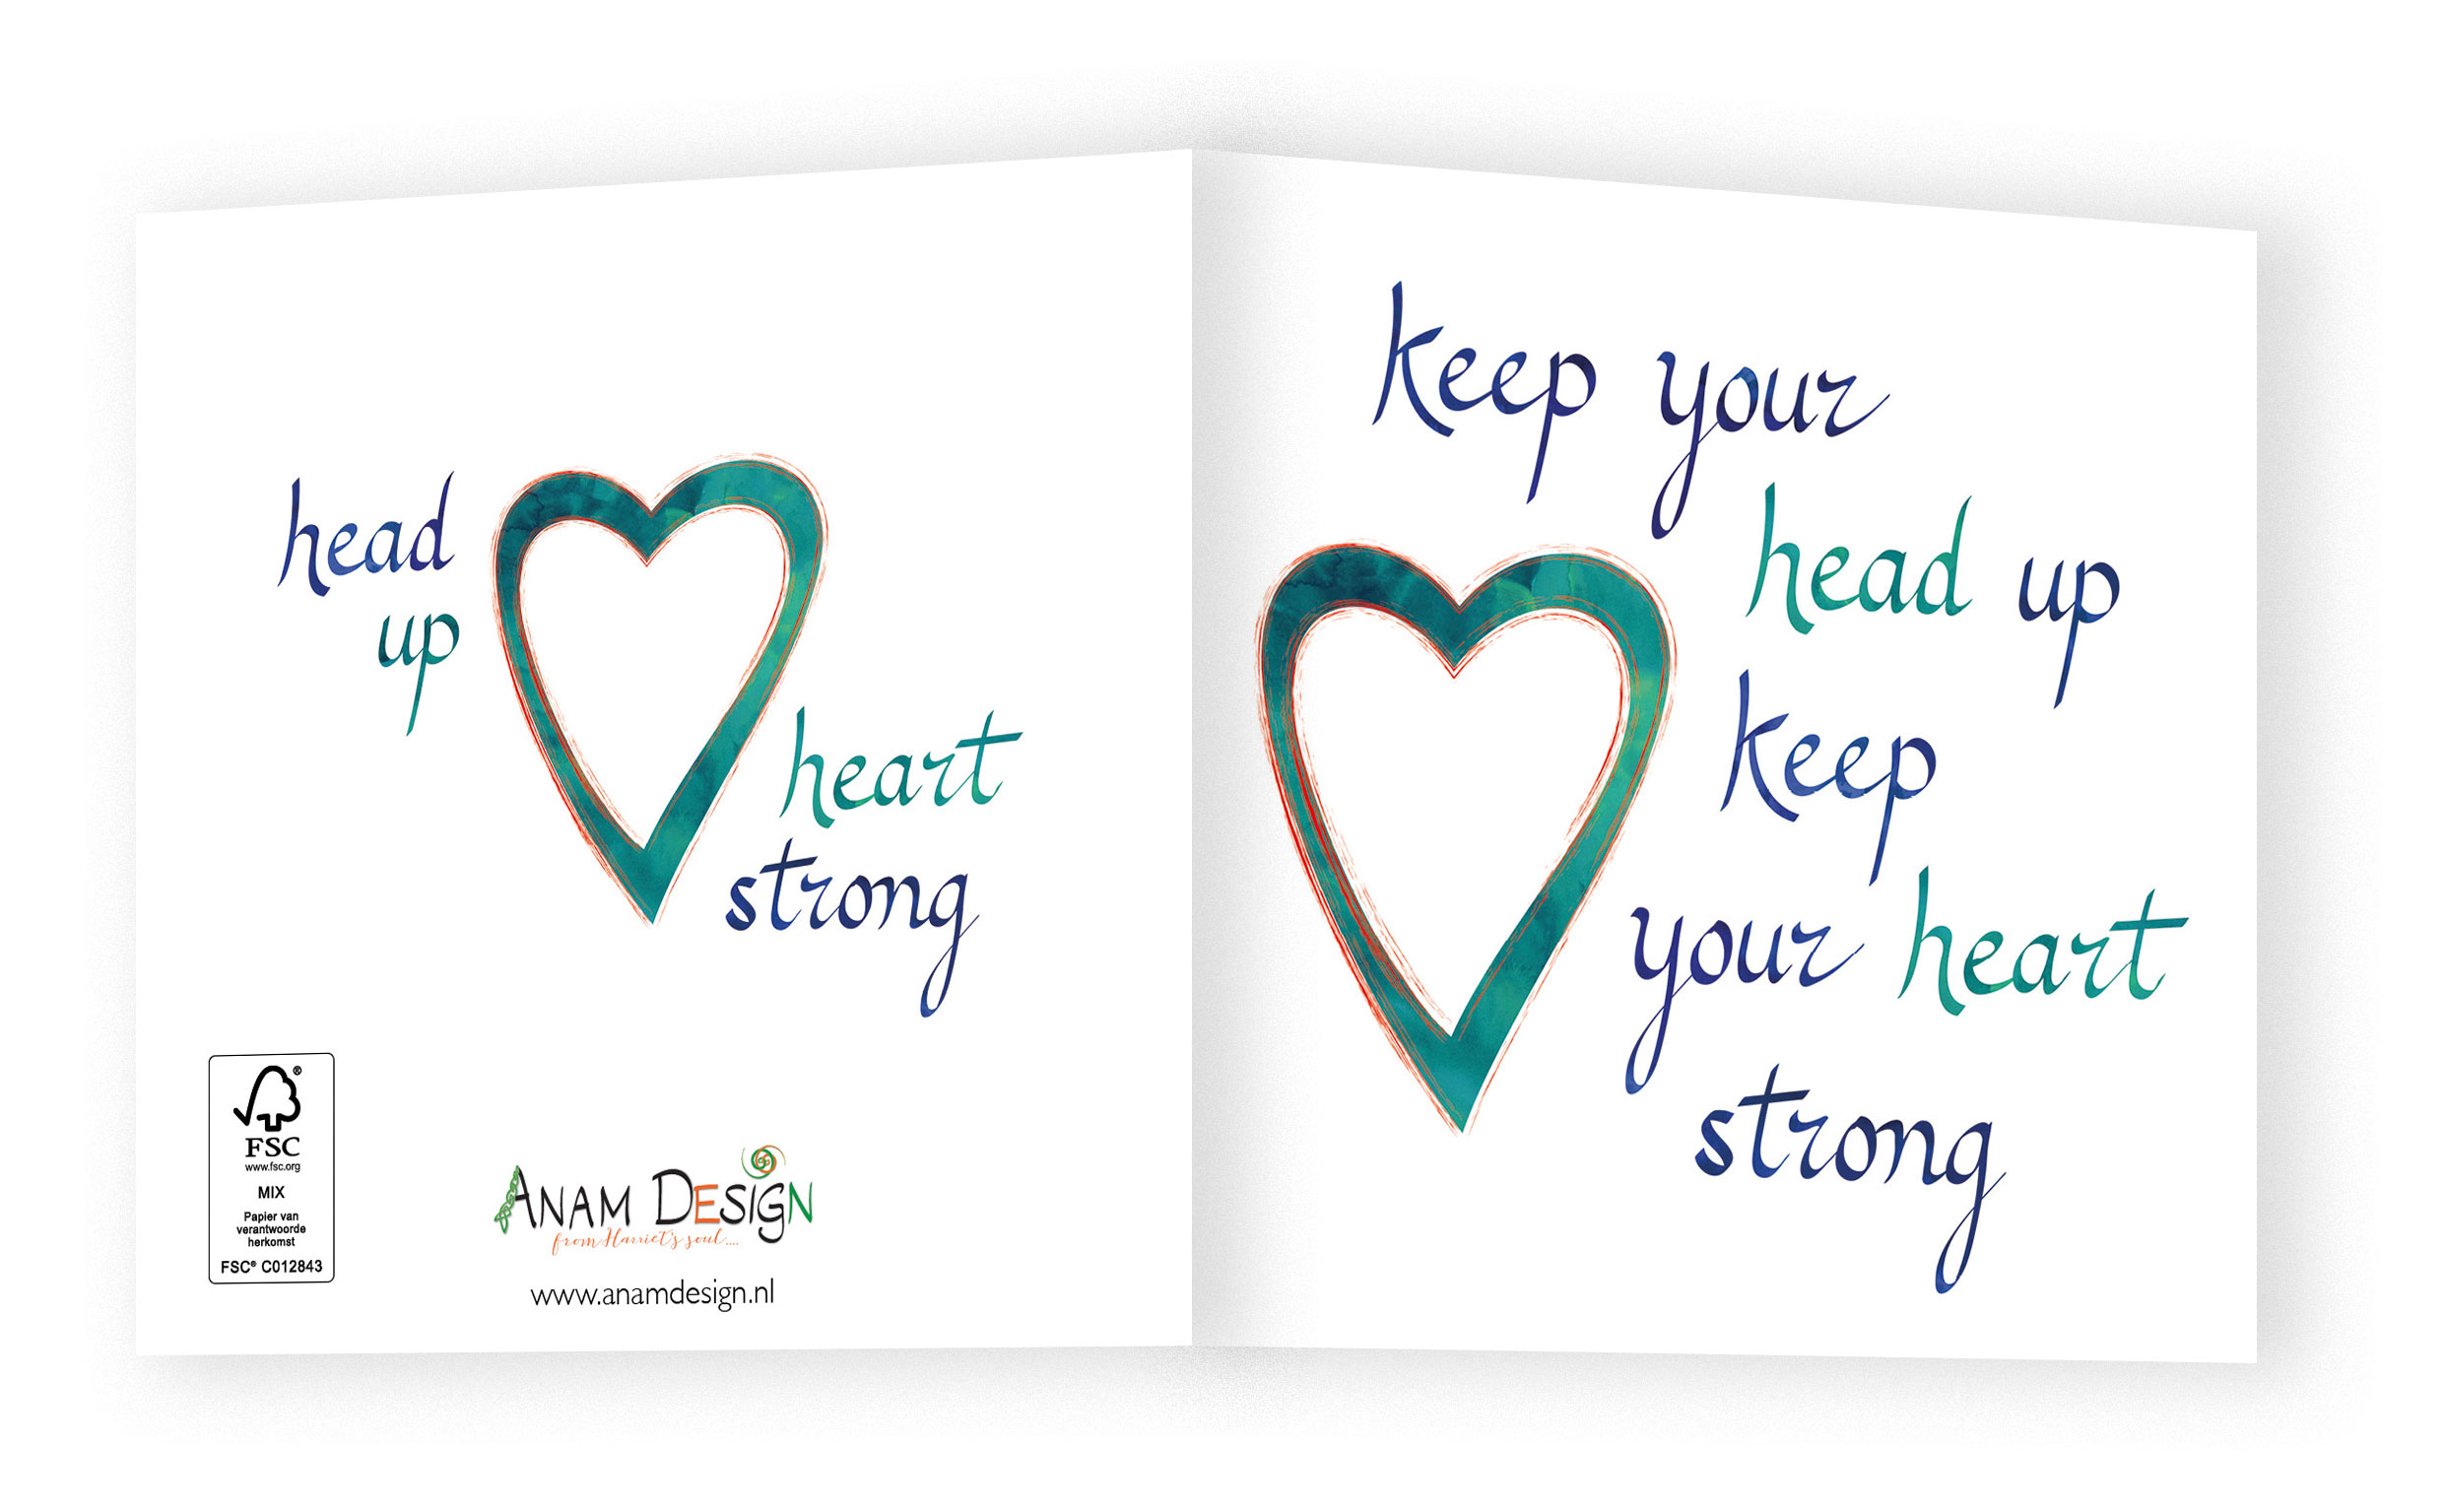 head
up
heart
strong
FSC
®
www.fsc.org
MIX
Papier van
verantwoorde
herkomst
FSC® C012843
ANAM DESIGN
from Harriet's soul....
www.anamdesign.nl
keep your
head up
keep
your heart
strong